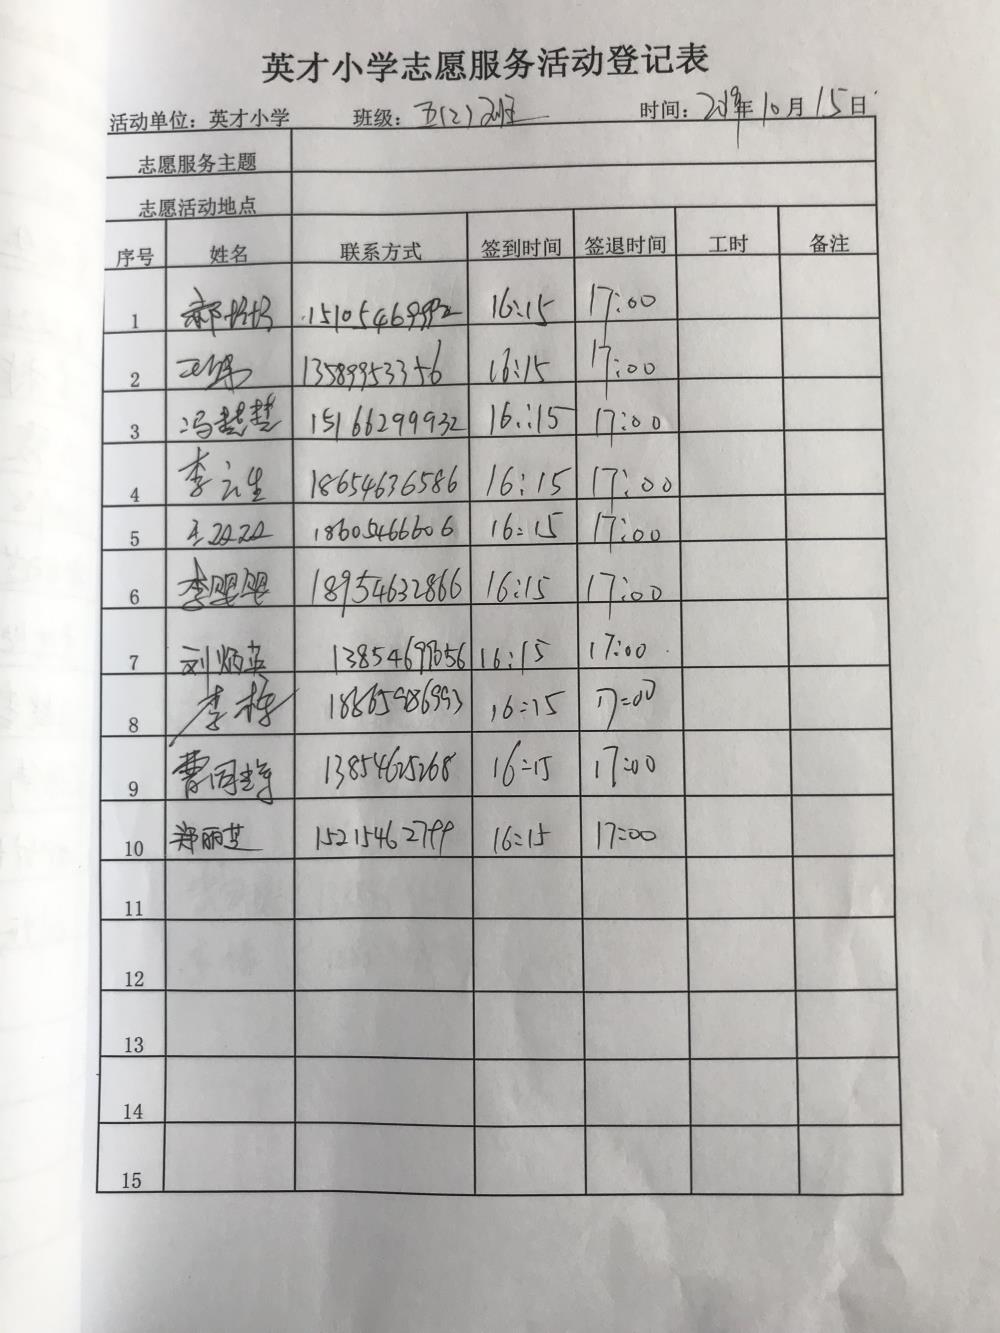 英才小学志愿服务活动登记表
活动单位：英才小学 班级：五(2)班 时间：2019年10月15日
志愿服务主题
志愿活动地点
序号 姓名 联系方式 签到时间 签退时间 工时 备注
1 16:15 17:00
2 13589953356 16:15 17:00
3 冯楚楚 15166299932 16:15 17:00
4 李云生 18654636586 16:15 17:00
5 王双双 18605466606 16:15 17:00
6 李婴婴 18954632866 16:15 17:00
7 刘炳英 16:15 17:00
8 李栋 16:15 17:00
9 13854625268 16:15 17:00
10 郑丽芝 15215462799 16:15 17:00
11
12
13
14
15